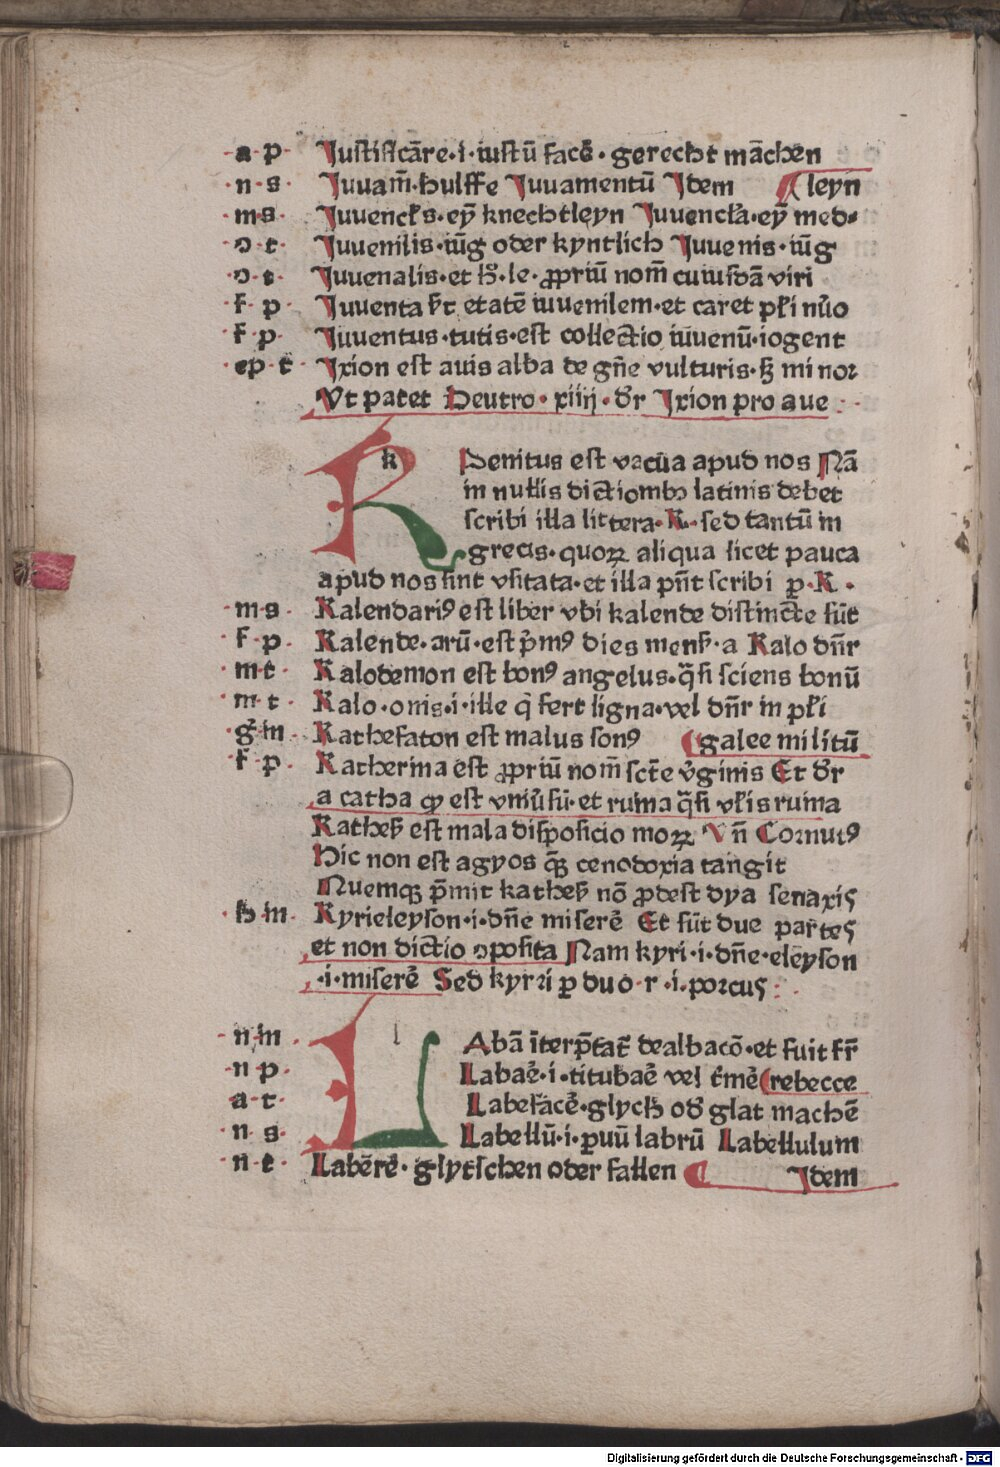 ·a·p· Iustificāre·i·iustū facē·gerecht māchen
·n·s· Iuuam̄·hulffe Iuuamentū Idem ¶ leyn
·m·s· Iuuencl̓s·eȳ knechtleyn Iuuencl̓a·eȳ med⸗
·ꝯ·t· Iuuenilis·iūg oder kyntlich Iuuenis·iūg
·ꝯ·t· Iuuenalis·et ·le·ꝓpriū nom̄ cuiusdā viri
·f·p· Iuuenta etatē iuuenilem·et caret pl̓i nūo
·f·p· Iuuentus·tutis·est collectio iuuenū·iogent
·ep·t· Ixion est auis alba de gn̄e vulturis·sꝫ minor
Vt patet Deutro·xiiij·dr̄ Ixion pro aue
k
KPenitus est vacūa apud nos Nā
in nullis dictionibꝰ latinis debet
scribi illa littera·K·sed tantū in
grecis·quoꝝ aliqua licet pauca
apud nos sint vsitata·et illa pn̄t scribi ꝑ·K·
·m·s· Kalendariꝰ est liber vbi kalende distincte sūt
·f·p· Kalende·arū·est p̄mꝰ dies mens̄·a Kalo dn̄r
·m·t· Kalodemon est bonꝰ angelus·q̄si sciens bonū
·m·t· Kalo·onis·i·ille q̄ fert ligna·vel dn̄r in pl̓i
·g·m· Kathefaton est malus sonꝰ ¶ galee militū
·f·p· Katherina est ꝓpriū nom̄ scte v̄ginis Et dr̄
a catha qꝫ est vniu̓sū·et ruina q̄si vl̓is ruina
Kathes̄ est mala dispositio moꝝ Vn̄ Cornutꝰ
Hic non est agyos qꝫ cenodoxia tangit
Nuemqꝫ p̄mit kathes̄ nō ꝓdest dya senaxis
·h·m· Kyrieleyson·i·dn̄e miserē Et sūt due partes
et non dictio ꝯposita Nam kyri·i·dn̄e·eleyson
·i·miserē Sed kyrri ꝑ duo·r·i·porcus
l
·n·m· LAbā īterp̄tat̄ dealbacō·et fuit fr̄
·n·p· Labaē·i·titubaē vel t̓mē ¶ rebecce
·a·t· Labefacē·glych od̓ glat machē
·n·s· Labellū·i·ꝑuū labrū Labellulum
·n·t· Labērē·glytschen oder fallen ¶ Idem
Digitalisierung gefördert durch die Deutsche Forschungsgemeinschaft - DFG